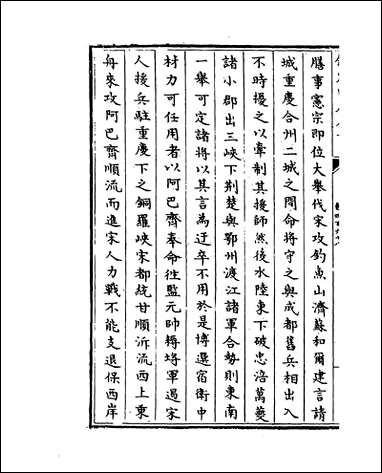 膳事憲宗即位大舉伐宋攻釣魚山濟蘇和爾建言請
城重慶合州二城之間命將守之與成都舊兵相出入
不時擾之以牽制其援師然後水陸東下破忠涪萬夔
諸小郡出三峽下荆楚與鄂州渡江諸軍合勢則東南
一舉可定諸將以其言為迂卒不用於是博選宿衛中
材力可任用者以阿巴齊奉命徃監元帥耨埒軍遏宋
人援兵駐重慶下之銅羅峽宋都統甘順泝流西上乗
舟來攻阿巴齊順流而進宋人力戰不能支退保西岸